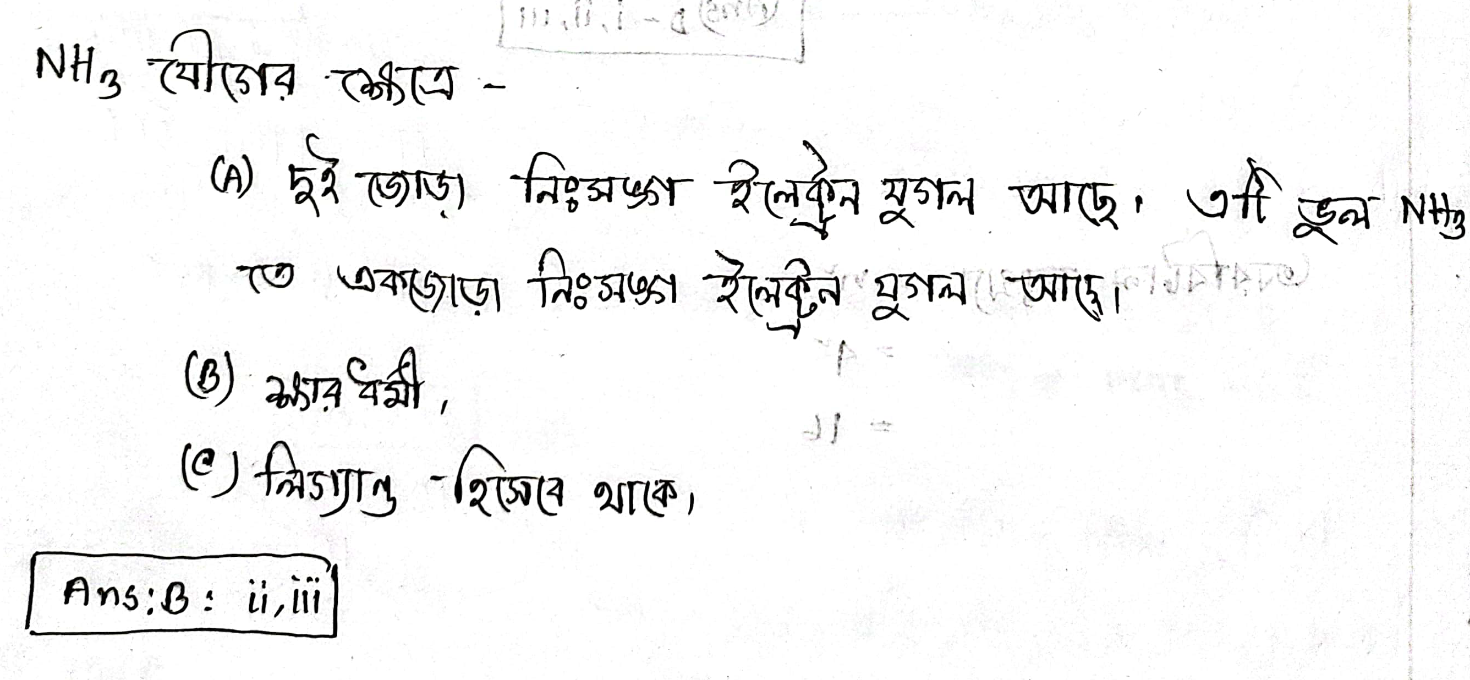 NH3 যৌগের ক্ষেত্রে -
(A) দুই জোড়া নিঃসঙ্গ ইলেক্ট্রন যুগল আছে। এটি ভুল NH3
তে একজোড়া নিঃসঙ্গ ইলেক্ট্রন যুগল আছে।
(B) ক্ষার ধর্মী,
(C) লিগ্যান্ড হিসেবে থাকে,
Ans: B: ii, iii